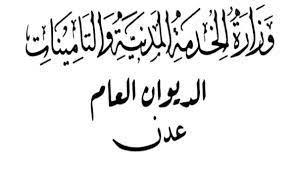 وزارة الخدمة المدنية والتأمينات
الديوان العام
عدن